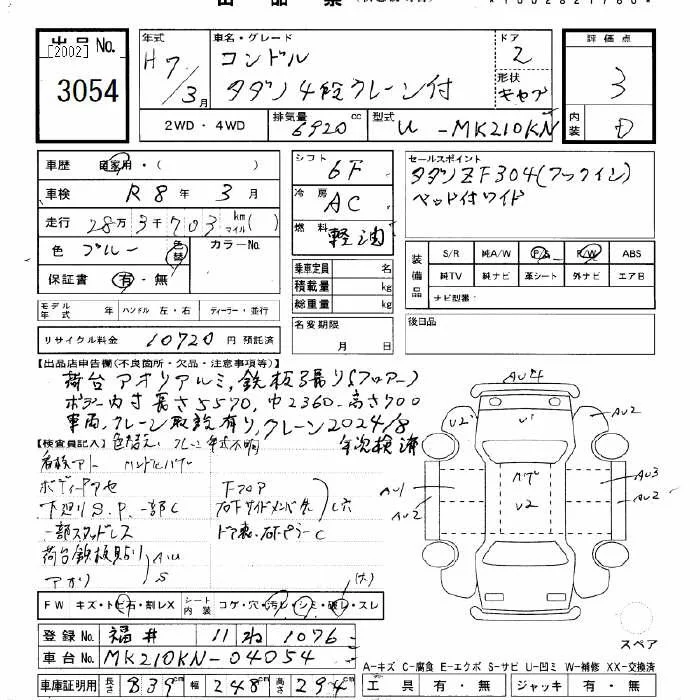 出品票
*1002821760*
出品No. [2002]
3054
年式
H7/3月
車名・グレード
コンドル
タダノ4段クレーン付
ドア
2
形状
キャブ
評価点
3
内装
D
2WD・4WD
排気量
6920cc
型式
U-MK210KN
車歴
自家用・( )
車検
R8年3月
走行
28万3千703km マイル( )
色
ブルー
色替
カラーNo.
保証書
有・無
シフト
6F
冷房
AC
燃料
軽油
乗車定員 名
積載量 kg
総重量 kg
セールスポイント
タダノZF304(フックイン)
ベッド付ワイド
装備品
S/R 純A/W P/S P/W ABS
純TV 純ナビ 革シート 外ナビ エアB
ナビ型番:
モデル年式 年 ハンドル 左・右 ディーラー・並行
リサイクル料金 10720円 預託済
名変期限
月 日
後日品
【出品店申告欄(不良箇所・欠品・注意事項等)】
荷台アオリアルミ,鉄板張り(フロアー)
ボデー内寸長さ5570,巾2360,高さ400
車両,クレーン取説有り,クレーン2024/8
年次検済
【検査員記入】色替え, クレーン年式不明
看板アト
ボディーアセ
下廻りS.P.一部C
一部スタッドレス
荷台鉄板貼り
アオリ
AU
S
下フロア
右下サイドメンバー先
C穴
ドア裏,右下ピラーC
AU4
U2
U1
AU2
AU1
AU2
U2
AU3
AU2
スペア
FW キズ・トビ石・割レX シート内装 コゲ・穴・汚レ・シミ・破レ・スレ
(大)
登録No. 福井 11 ね 1076
車台No. MK210KN-04054
車庫証明用 長さ 839cm 幅 248cm 高さ 294cm
A-キズ C-腐食 E-エクボ S-サビ U-凹ミ W-補修 XX-交換済
工具 有・無 ジャッキ 有・無